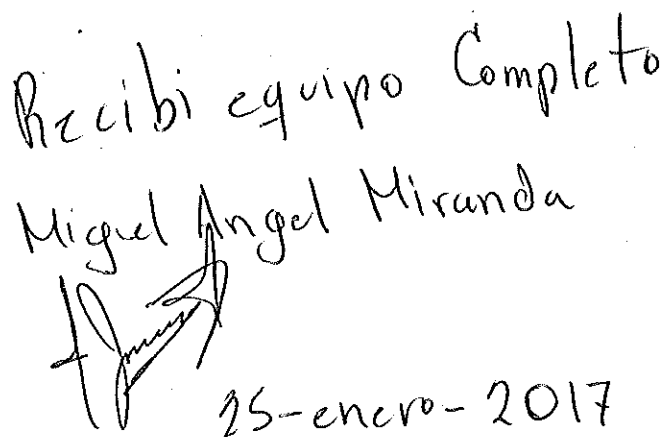 Recibi equipo Completo
Miguel Angel Miranda
25-enero-2017